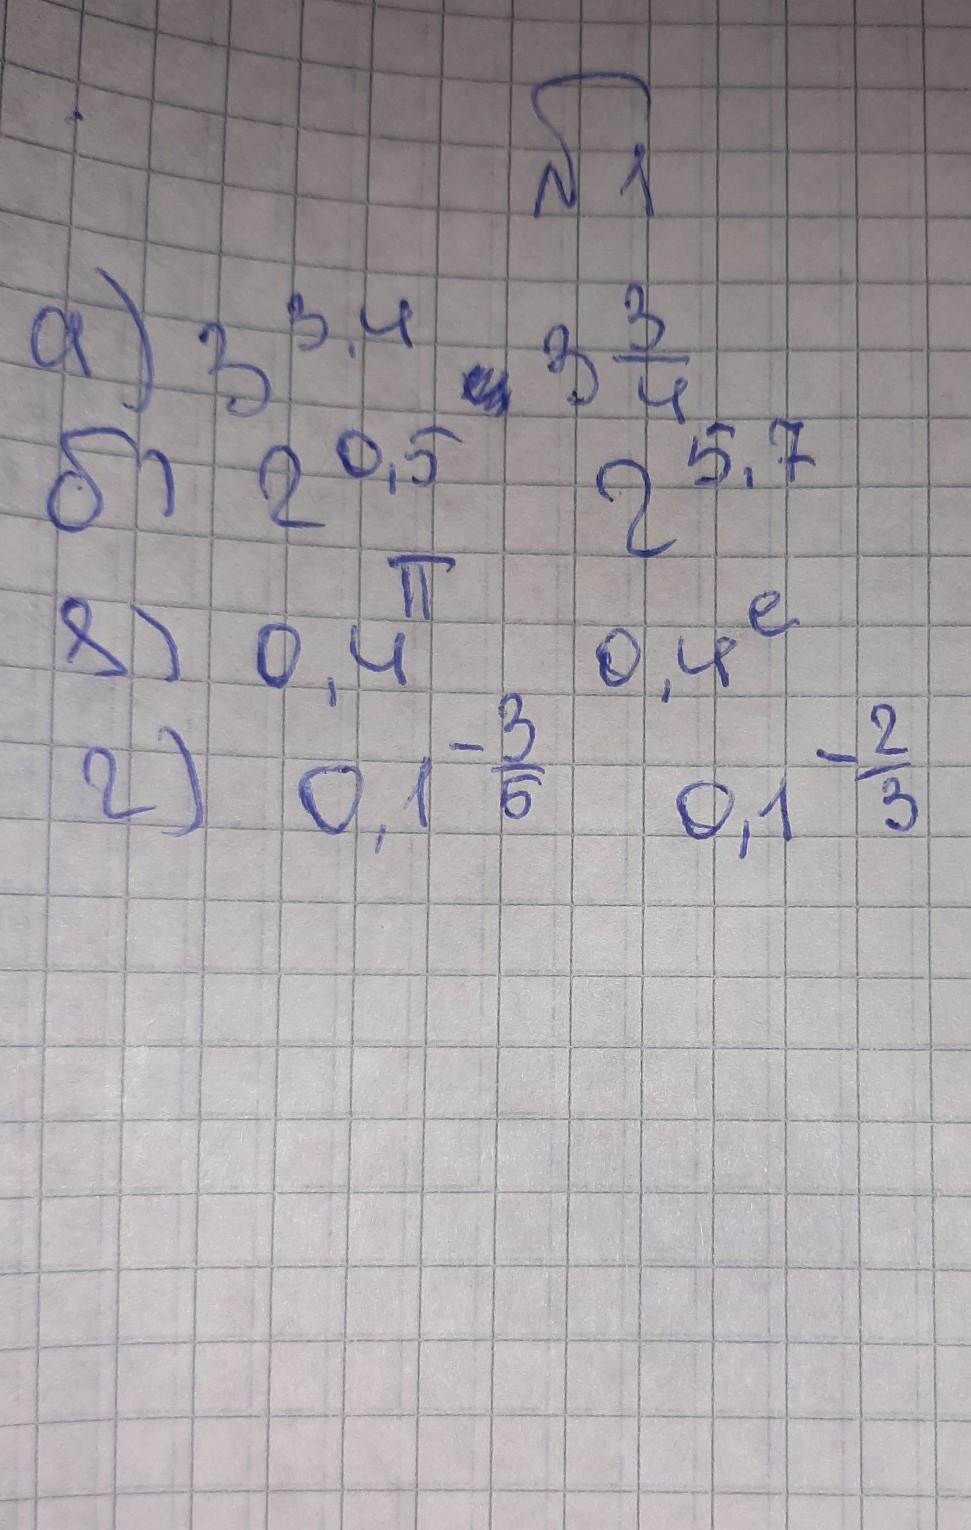 № 1
а) 3^3,4 и 3^3/4
б) 2^0,5 2^5,7
в) 0,4^π 0,4^e
г) 0,1^-3/5 0,1^-2/3